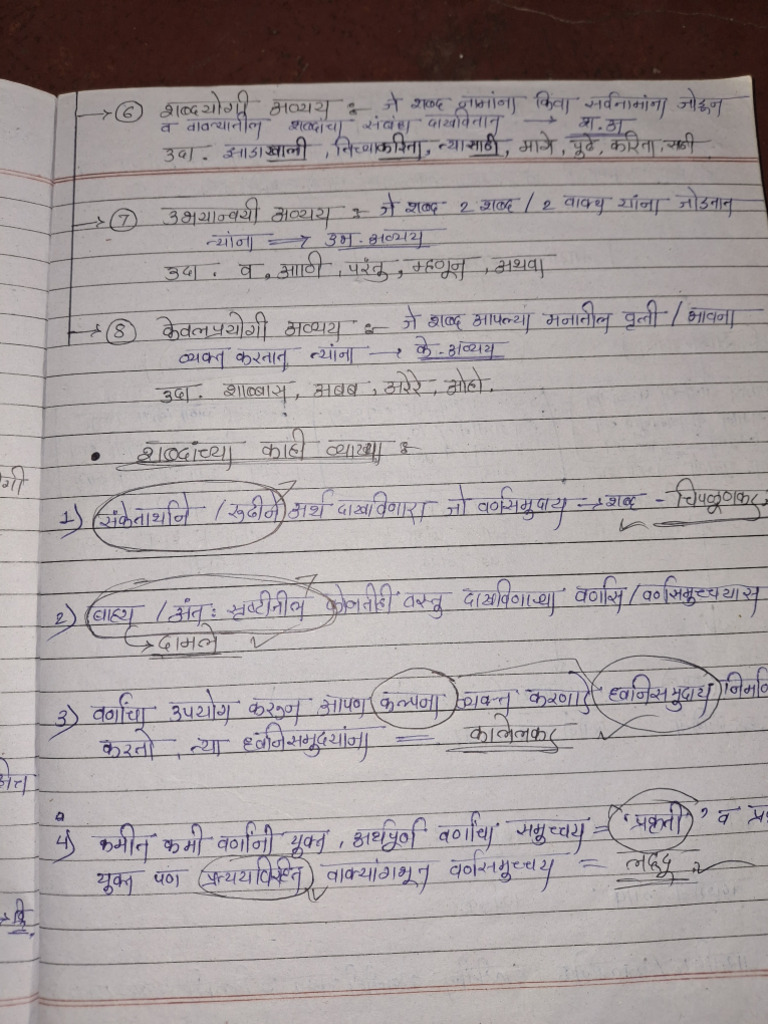 → ⑥ शब्दयोगी अव्यय :- जे शब्द नामांना किंवा सर्वनामांना जोडून
व वाक्यातील शब्दांचा संबंध दाखवितात → श.अ
उदा. झाडाखाली, तिच्याकरिता, त्यासाठी, मागे, पुढे, करिता, साठी
→ ⑦ उभयान्वयी अव्यय :- जे शब्द 2 शब्द / 2 वाक्य यांना जोडतात
त्यांना ⇒ उभ. अव्यय
उदा. व, आणि, परंतु, म्हणून, अथवा
→ ⑧ केवलप्रयोगी अव्यय :- जे शब्द आपल्या मनातील वृत्ती / भावना
व्यक्त करतात त्यांना → के. अव्यय
उदा. शाब्बास, अबब, अरेरे, ओहो.
• शब्दांच्या काही व्याख्या :
1) संकेतार्थाने / रूढीने अर्थ दाखविणारा जो वर्णसमुदाय → शब्द - चिपळूणकर
2) बाह्य / अंत: सृष्टीतील कोणतीही वस्तु दाखविणाऱ्या वर्णास / वर्णसमुच्चयास
→ दामले
3) वर्णांचा उपयोग करून आपण कल्पना व्यक्त करणारे ध्वनिसमुदाय निर्माण
करतो, त्या ध्वनिसमुदायांना = कालेलकर
4) कमीत कमी वर्णांनी युक्त, अर्थपूर्ण वर्णांचा समुच्चय = 'प्रकृती' व
युक्त पण प्रत्ययविरहित वाक्यांगभूत वर्णसमुच्चय =